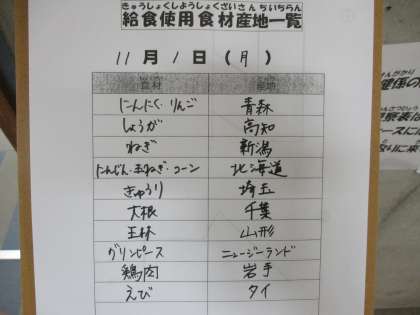 きゅうしょくしようしょくざいさんちいちらん
給食使用食材産地一覧
11月1日(月)
食材 産地
にんにく・りんご 青森
しょうが 高知
ねぎ 新潟
にんじん・玉ねぎ・コーン 北海道
きゅうり 埼玉
大根 千葉
玉林 山形
グリンピース ニュージーランド
鶏肉 岩手
えび タイ